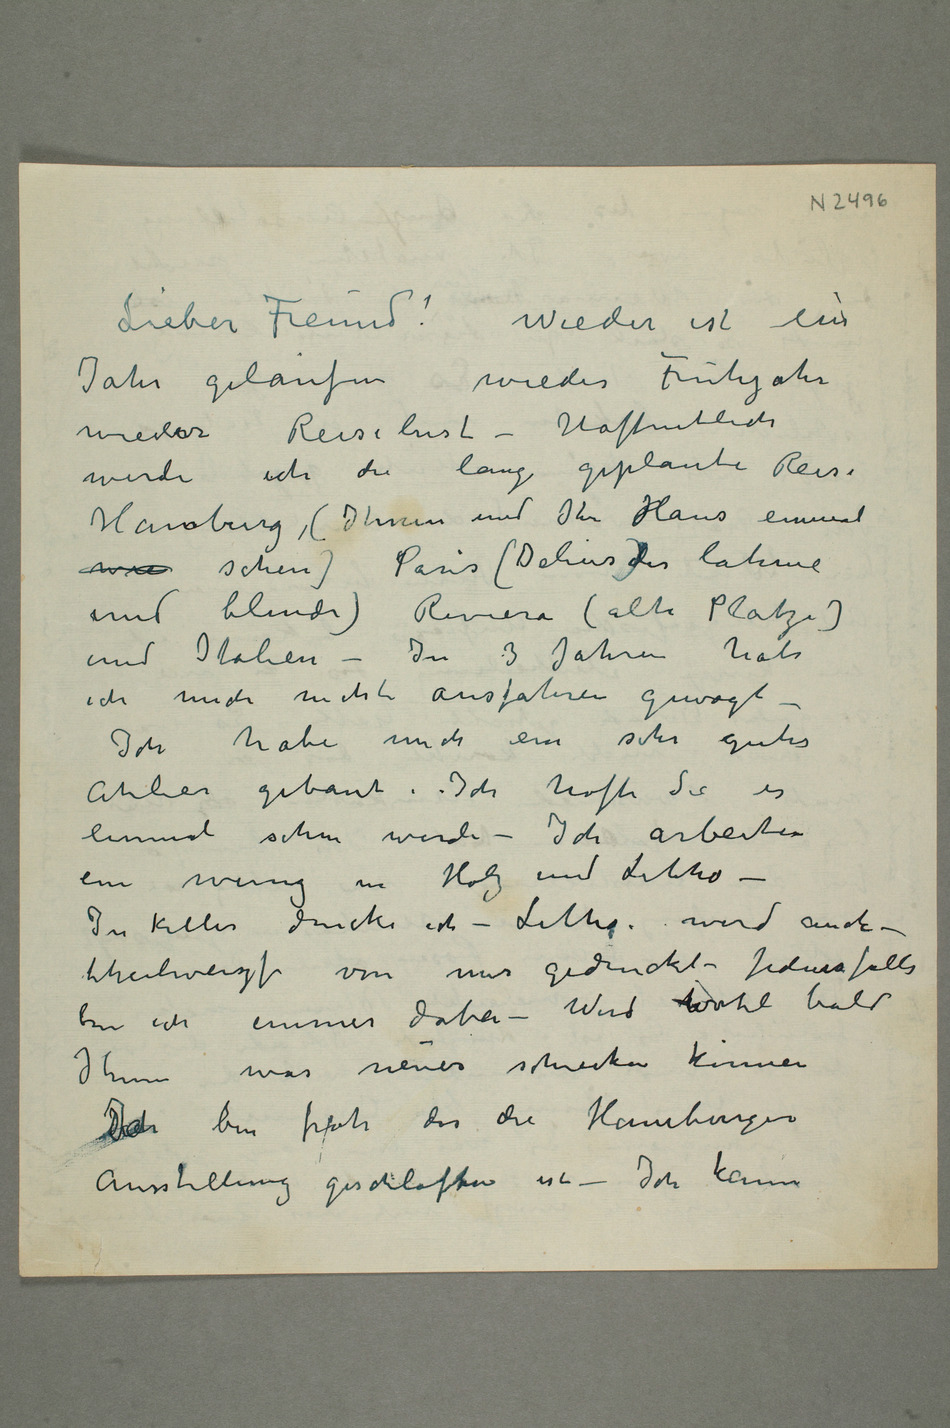 N 2496
Lieber Freund! Wieder ist ein
Jahr gelaufen wieder Frühjahr
wieder Reiselust – Hoffentlich
werde ich die lang geplante Reise
Hamburg, (Ihnen und Ihr Haus einmal
sehen) Paris (Delius) der lahme
und blinde) Riviera (alte Plätze)
und Italien – In 3 Jahren habe
ich mich nicht ausfahren gewagt –
Ich habe mich ein sehr gutes
Atelier gebaut. Ich hoffe Sie es
einmal sehen werde – Ich arbeite
ein wenig in Holz und Litho –
In Keller drucke ich – Litho. wird auch –
theilweise von mir gedruckt – Jedenfalls
bin ich immer dabei – Wird wohl bald
Ihnen was neues schicken können
Ich bin froh das die Hamburger
Ausstellung geschlossen ist – Ich kann